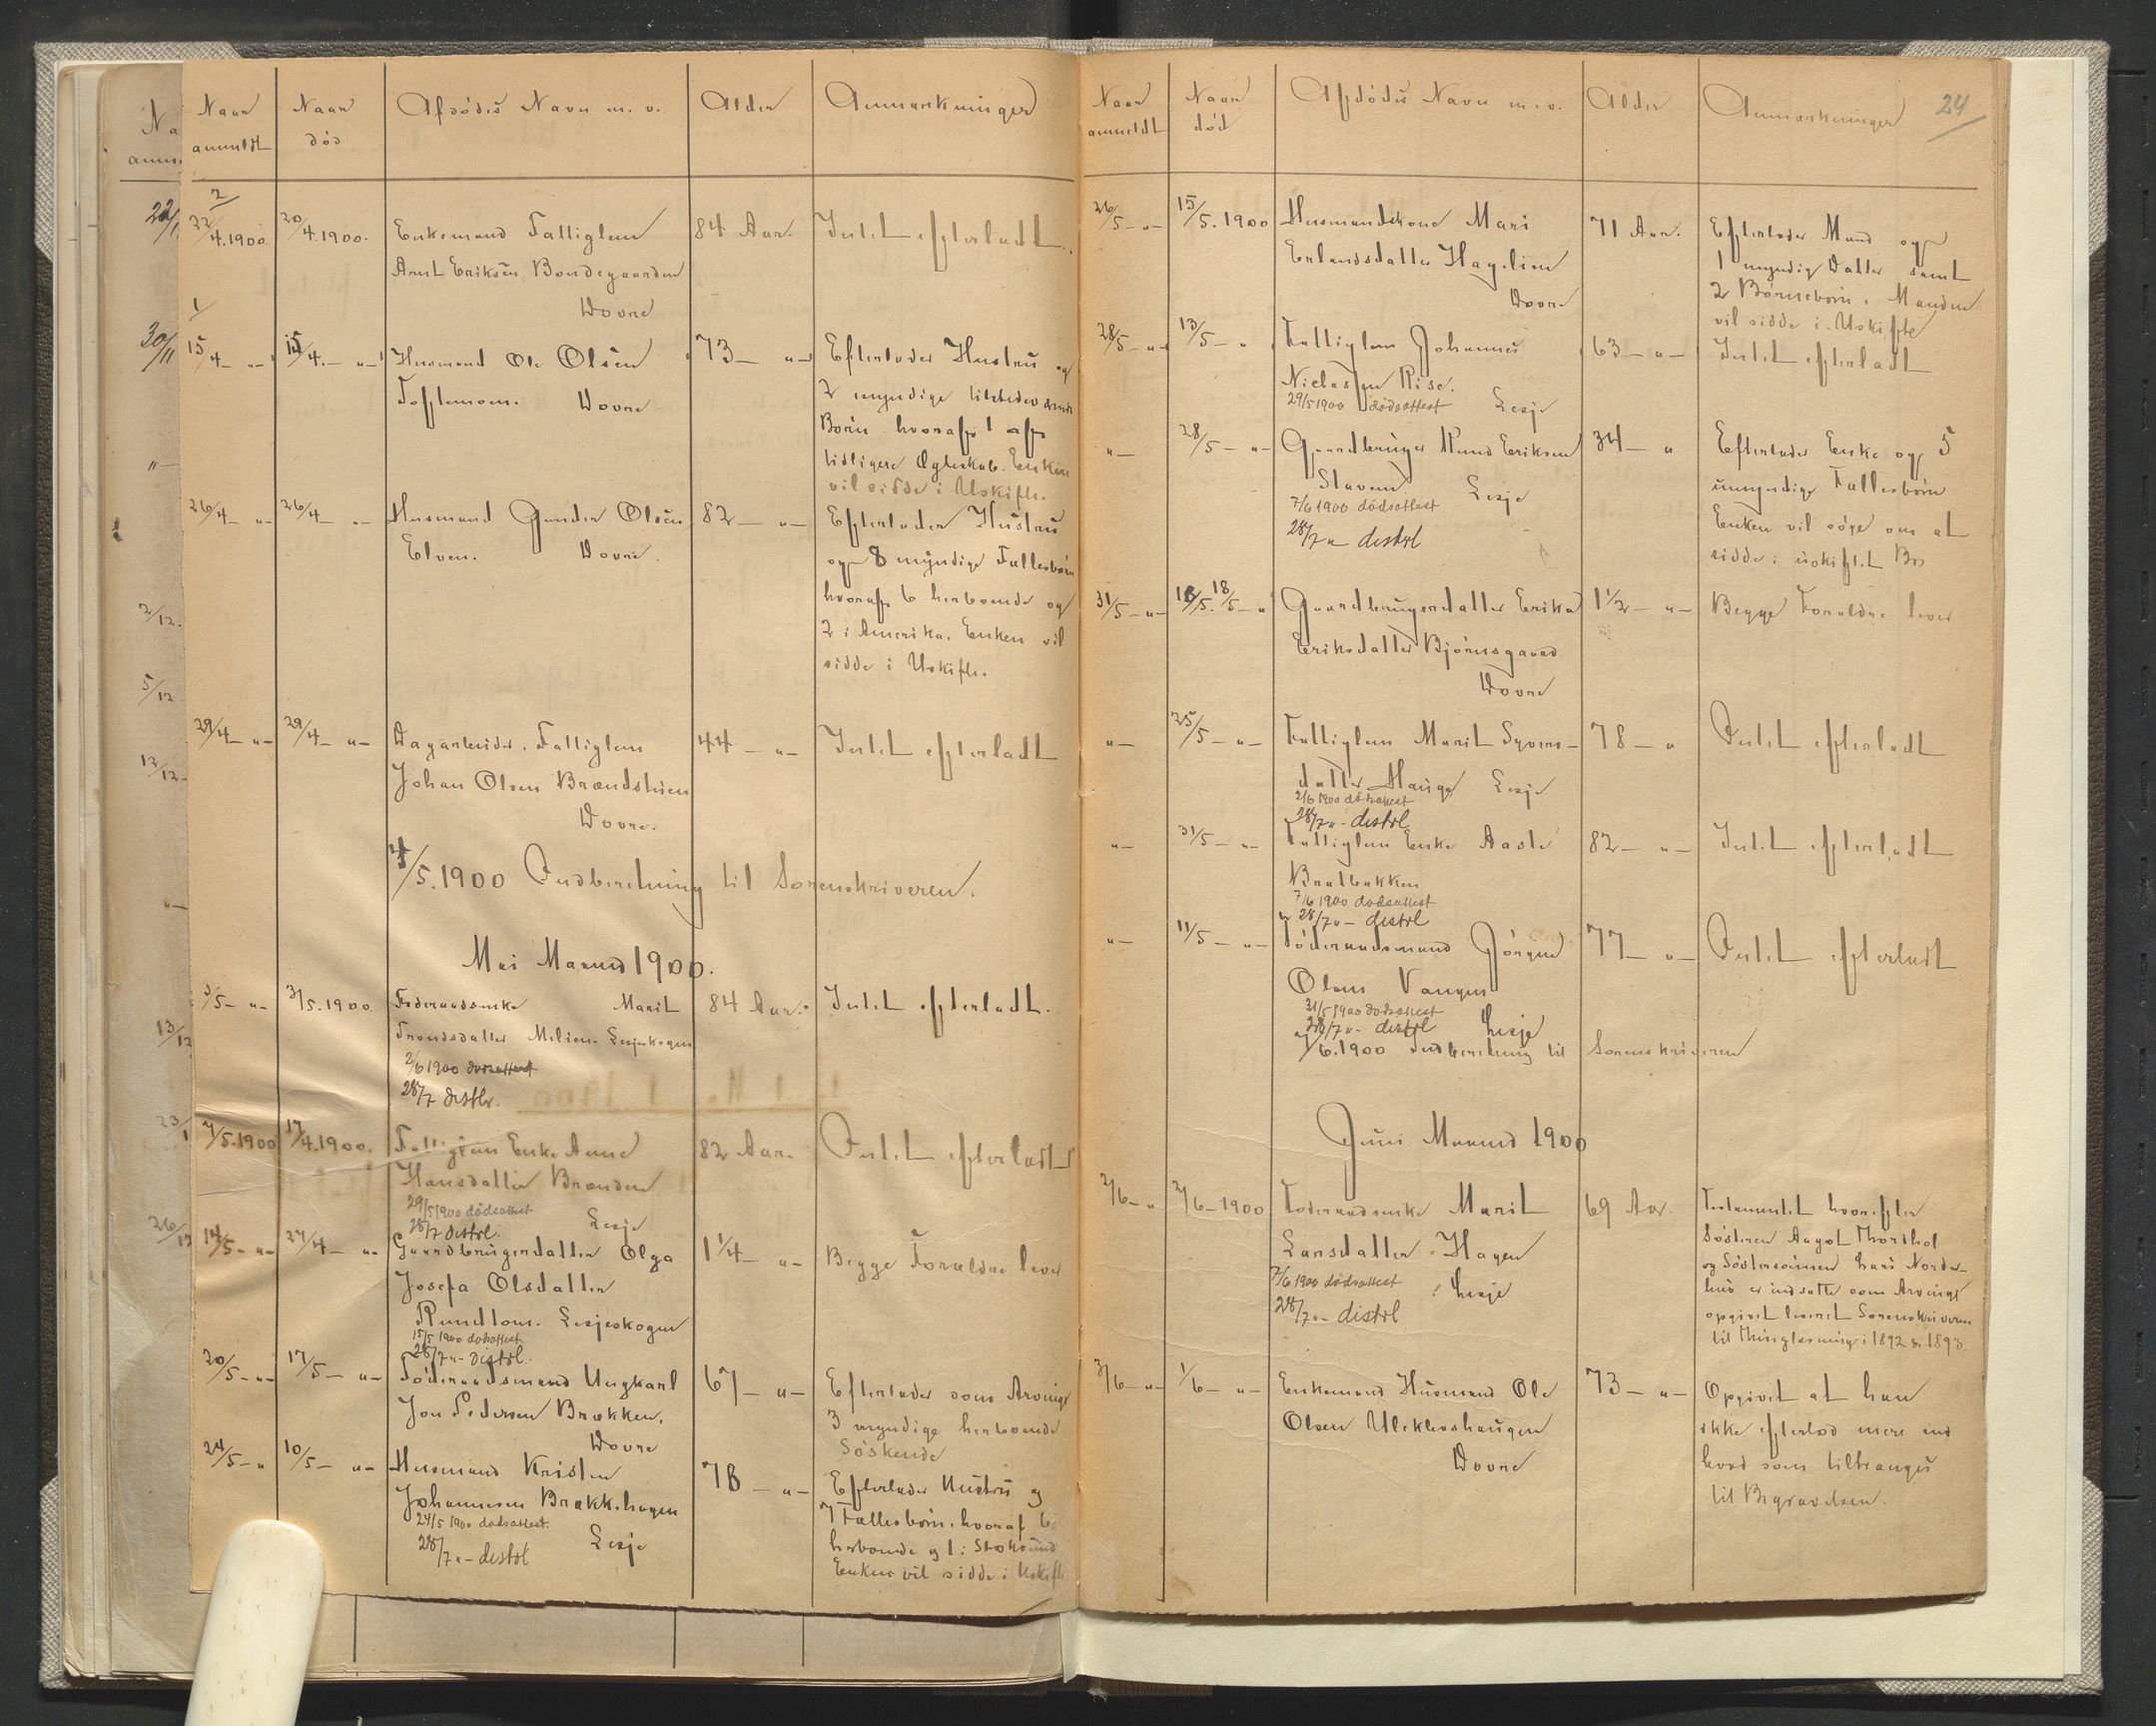 Naar anmeldt
Naar død
Afdödes Navn m. v.
Alder
Anmærkninger
2
22/4.1900. 20/4.1900. Enkemand Fattiglem 84 Aar. Intet efterladt.
Arnt Eriksen Bondegaarden
Dovre
1
15/4 - " - 15/4. - " - Husmand Ole Olsen 73 - " - Efterlader Hustru og
Toftemoen. Dovre 2 myndige tilstedeværende
Börn hvoraf 1 af
tidligere Ægteskab. Enken
vil sidde i Uskifte.
26/4 - " - 26/4 - " - Husmand Gunder Olsen 82 - " - Efterlader Hustru
Elven. Dovre. og 8 myndige Fællesbörn
hvoraf 6 herboende og
2 i Amerika. Enken vil
sidde i Uskifte.
29/4 - " - 29/4 - " - Dagarbeider. Fattiglem 44 - " - Intet efterladt
Johan Olsen Brændstuen
Dovre.
4/5.1900 Indberetning til Sorenskriveren.
Mai Maaned 1900.
3/5 - " - 3/5.1900 Föderaadsenke Marit 84 Aar. Intet efterladt.
Trondsdatter Melien. Lesjeskogen
2/6 1900 dödsattest
28/7 distlr.
7/5.1900 17/4.1900. Fattiglem Enke Anne 82 Aar. Intet efterladt
Hansdatter Brænden
29/5 1900 dödsattest
28/7 distrl. Lesje
14/5 - " - 24/4 - " - Gaardbrugerdatter Olga 1 1/4 - " - Begge Forældre lever
Josefa Olsdatter
Rundtom. Lesjeskogen
15/5 1900 dödsattest
28/7 " - distrl.
20/5 - " - 17/5 - " - Föderaadsmand Ungkarl 67 - " - Efterlader som Arvinger
Jon Pedersen Brækken. 3 myndige herboende
Dovre Söskende
24/5 - " 10/5 - " - Husmand Kristen 78 - " - Efterlader Hustru og
Johannesen Brækk.hagen 7 Fællesbörn. hvoraf 6
24/5 1900 dödsattest. herboende og 1 i Stoksund
28/7 " - distrl Lesje Enken vil sidde i Uskifte
24
Naar anmeldt
Naar död
Afdödes Navn m. v.
Alder
Anmærkninger
26/5 - " - 15/5.1900 Husmandskone Mari 71 Aar. Efterlader Mand og
Erlandsdatter Hagelien 1 myndig Datter samt
Dovre 2 Börnebörn. Manden
vil sidde i Uskifte
28/5 - " - 13/5 - " Fattiglem Johannes 63 - " - Intet efterladt
Niclassen Rise.
29/5 1900 dödsattest Lesje
" - 28/5 - " - Gaardbruger Knud Eriksen 34 - " Efterlader Enke og 5
Slaven Lesje umyndige Fællesbörn
7/6 1900 dödsattest Enken vil söge om at
28/7 " distrl sidde i uskiftet Bo
31/5 - " - 18/5. 18/5 - " Gaardbrugerdatter Erika 1 1/2 - " - Begge Forældre lever
Eriksdatter Björnsgaard
Dovre
" - 25/5 - " - Fattiglem Marit Syvers- 78 - " Intet efterladt
datter Hauge Lesje
2/6 1900 dödsattest
28/7 " - distrl
" - 31/5 - " - Fattiglem Enke Aaste 82 - " - Intet efterladt
Bratbakken
7/6 1900 dödsattest
28/7 " - distrl
" - 11/5 - " - Föderaadsmand Jörgen 77 - " - Intet efterladt
Olsen Vangen
31/5 1900 dödsattest
28/7 " - distrl Lesje
7/6.1900 Indberetning til Sorenskriveren
Juni Maaned 1900
2/6 - " 2/6 - 1900 Föderaadsenke Marit 69 Aar. Testamentet hvorefter
Larsdatter Hagen Sösteren Aagot Thordhol
7/6 1900 dödsattest Lesje og Söstersönnen Hans Norder-
28/7 " - distrl hus er indsatte som Arvinger
opgivet leveret Sorenskriveren
til Thinglæsning i 1892 & 1893.
3/6 - " - 1/6 - " - Enkemand Husmand Ole 73 - " - Opgivet at han
Olsen Ulekleivshaugen ikke efterlod mere end
Dovre hvad som tiltrænges
til Begravelsen.